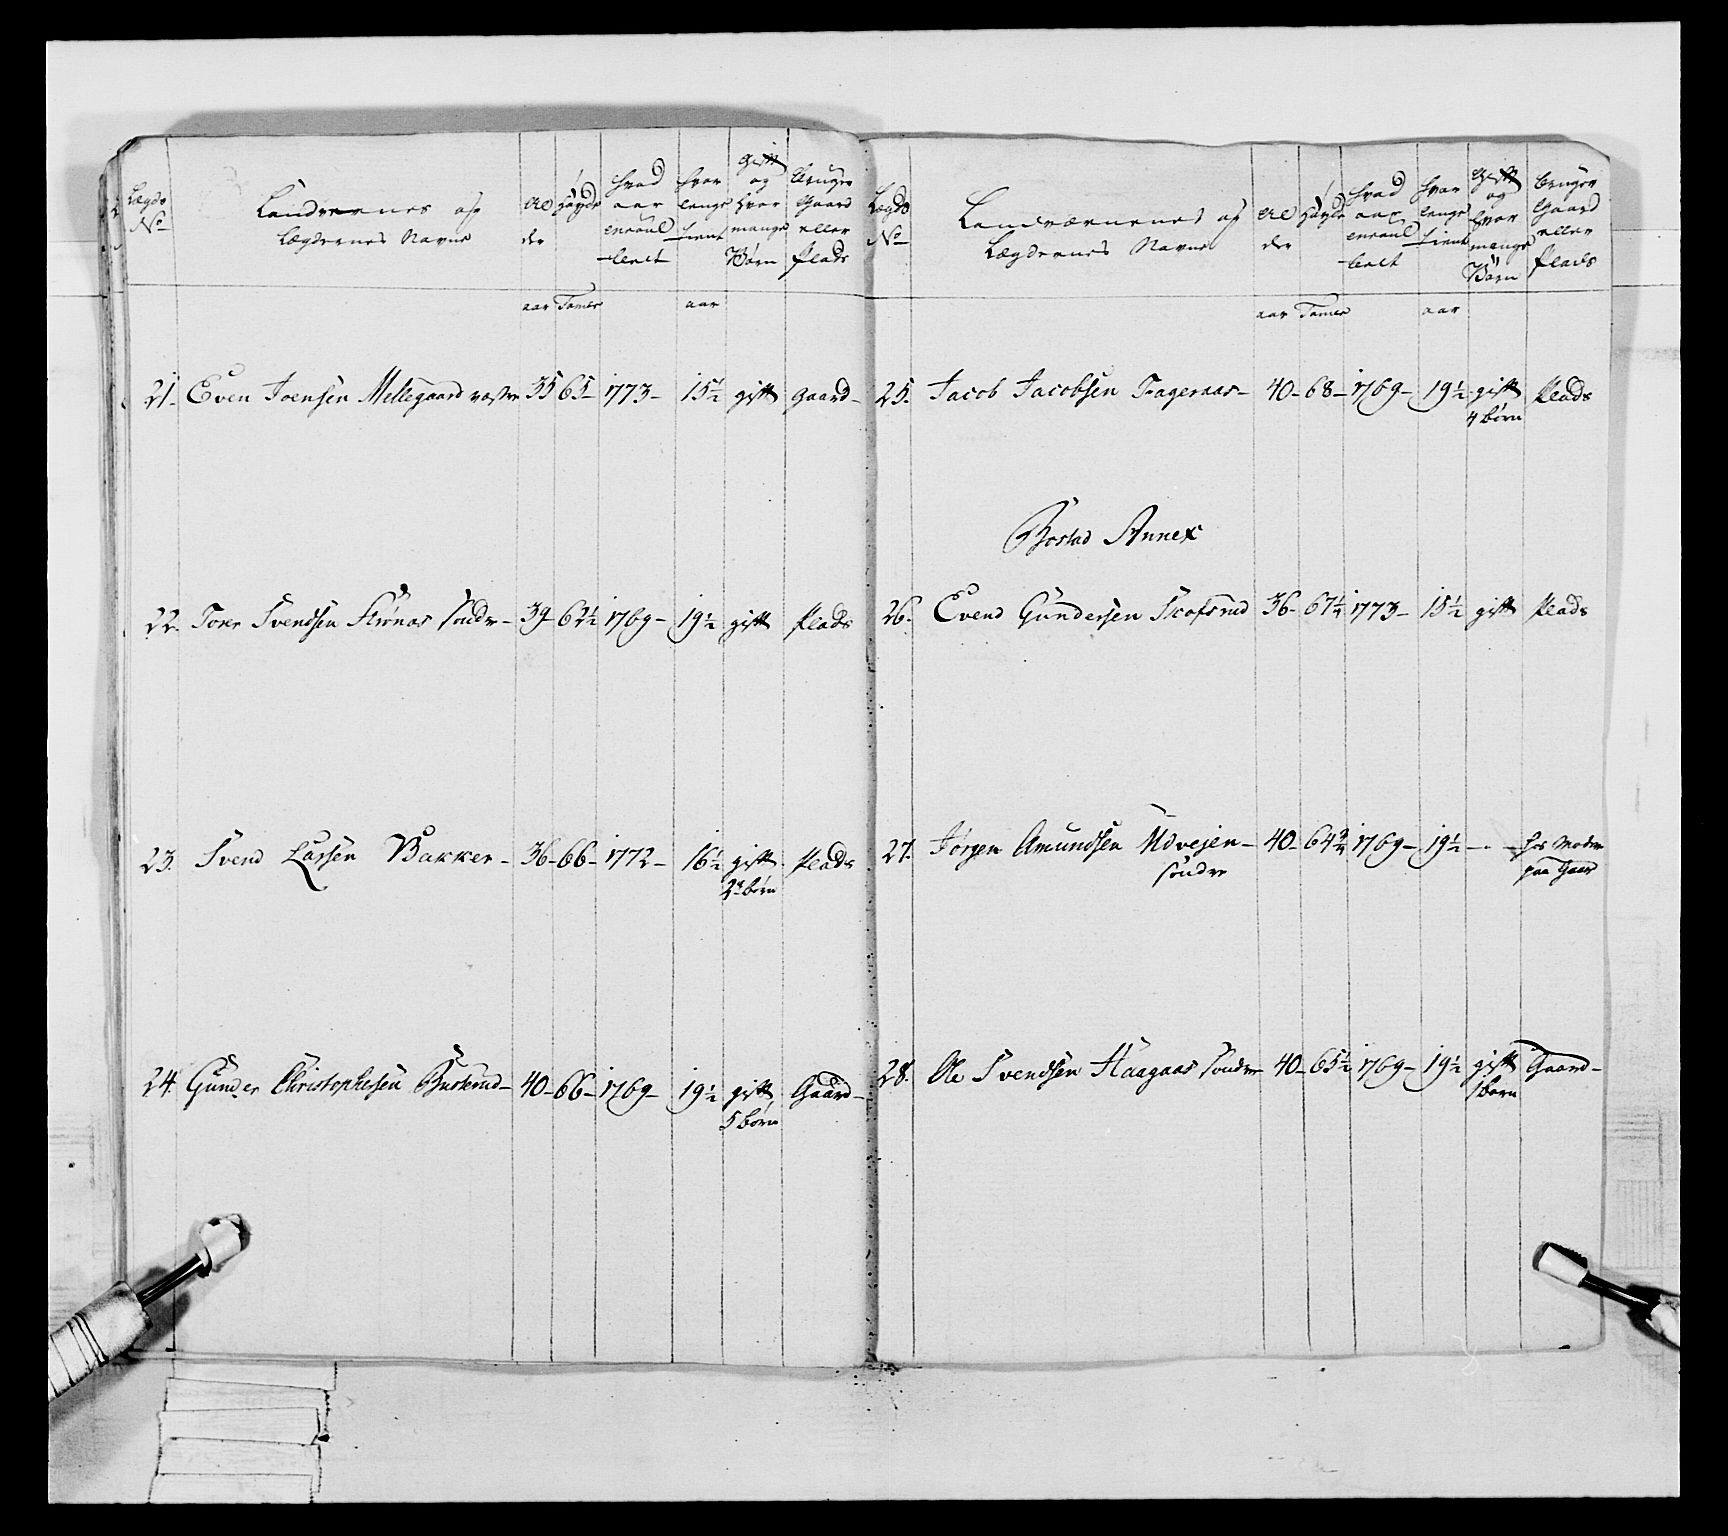 Lægds No
Landvernes og Lægdernes Navne
Al der
Høyde
hvad aar enroul leert
hvor lenge tient
Gift og hvor mange Børn
bruger Gaard eller Plads
aar Tomer aar
21. Even Joensen Mellegaard 35 65 - 1773 - 15½ gift gaard -
22. Tore Svendsen søndre - 39 - 62½ 1769 - 19½ gift Plads
23. Svend Larsen Bakken - 36 - 66 - 1772 - 16½ gift Plads
2 børn
24. Gunder Christophersen - 40 - 66 - 1769 - 19½ gift, Gaard -
5 børn
Lægds No
Landværnenes og Lægdernes Navne
Al der
Høyde
hvad aar enroul leert
hvor lenge tient
Gift og hvor mange Børn
bruger Gaard eller Plads
aar Tomer aar
25. Jacob Jacobsen Fragernaas - 40 - 68 - 1769 - 19½ gift Plads
4 børn
Annex
26. Evend Gundersen 36 - 67¼ 1773 - 15½ gift Plads
27. Jørgen Amundsen Udvejen - 40 - 64¾ 1769 - 19½ - . - hos Moder
søndre paa Gaar
28. Ole Svendsen Haagaas søndre 40 - 65½ 1769 - 19½ gift Gaard -
børn